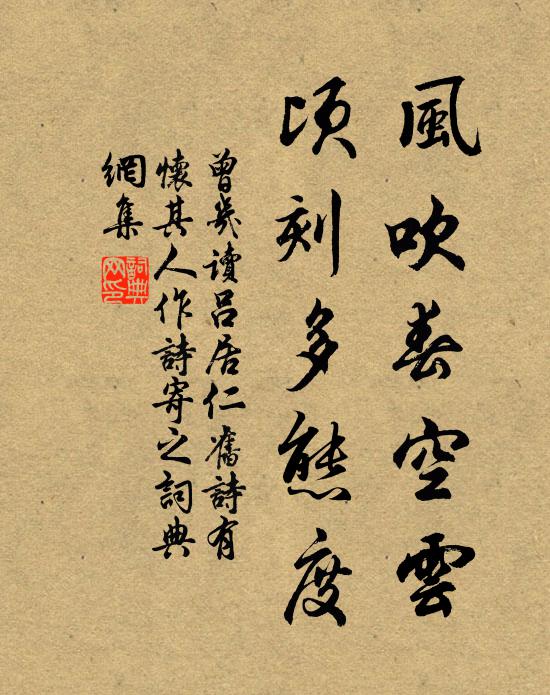 風吹春空雲
頃刻多態度
曾幾讀呂居仁舊詩有
懷其人作詩寄之詞典
網集
詞典
网印